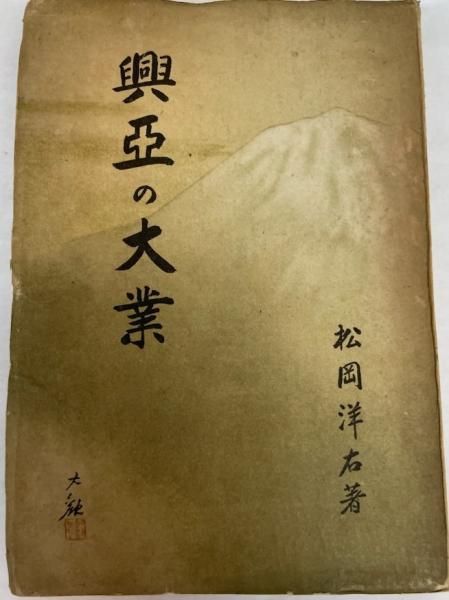 興亞の大業
松岡洋右著
大観